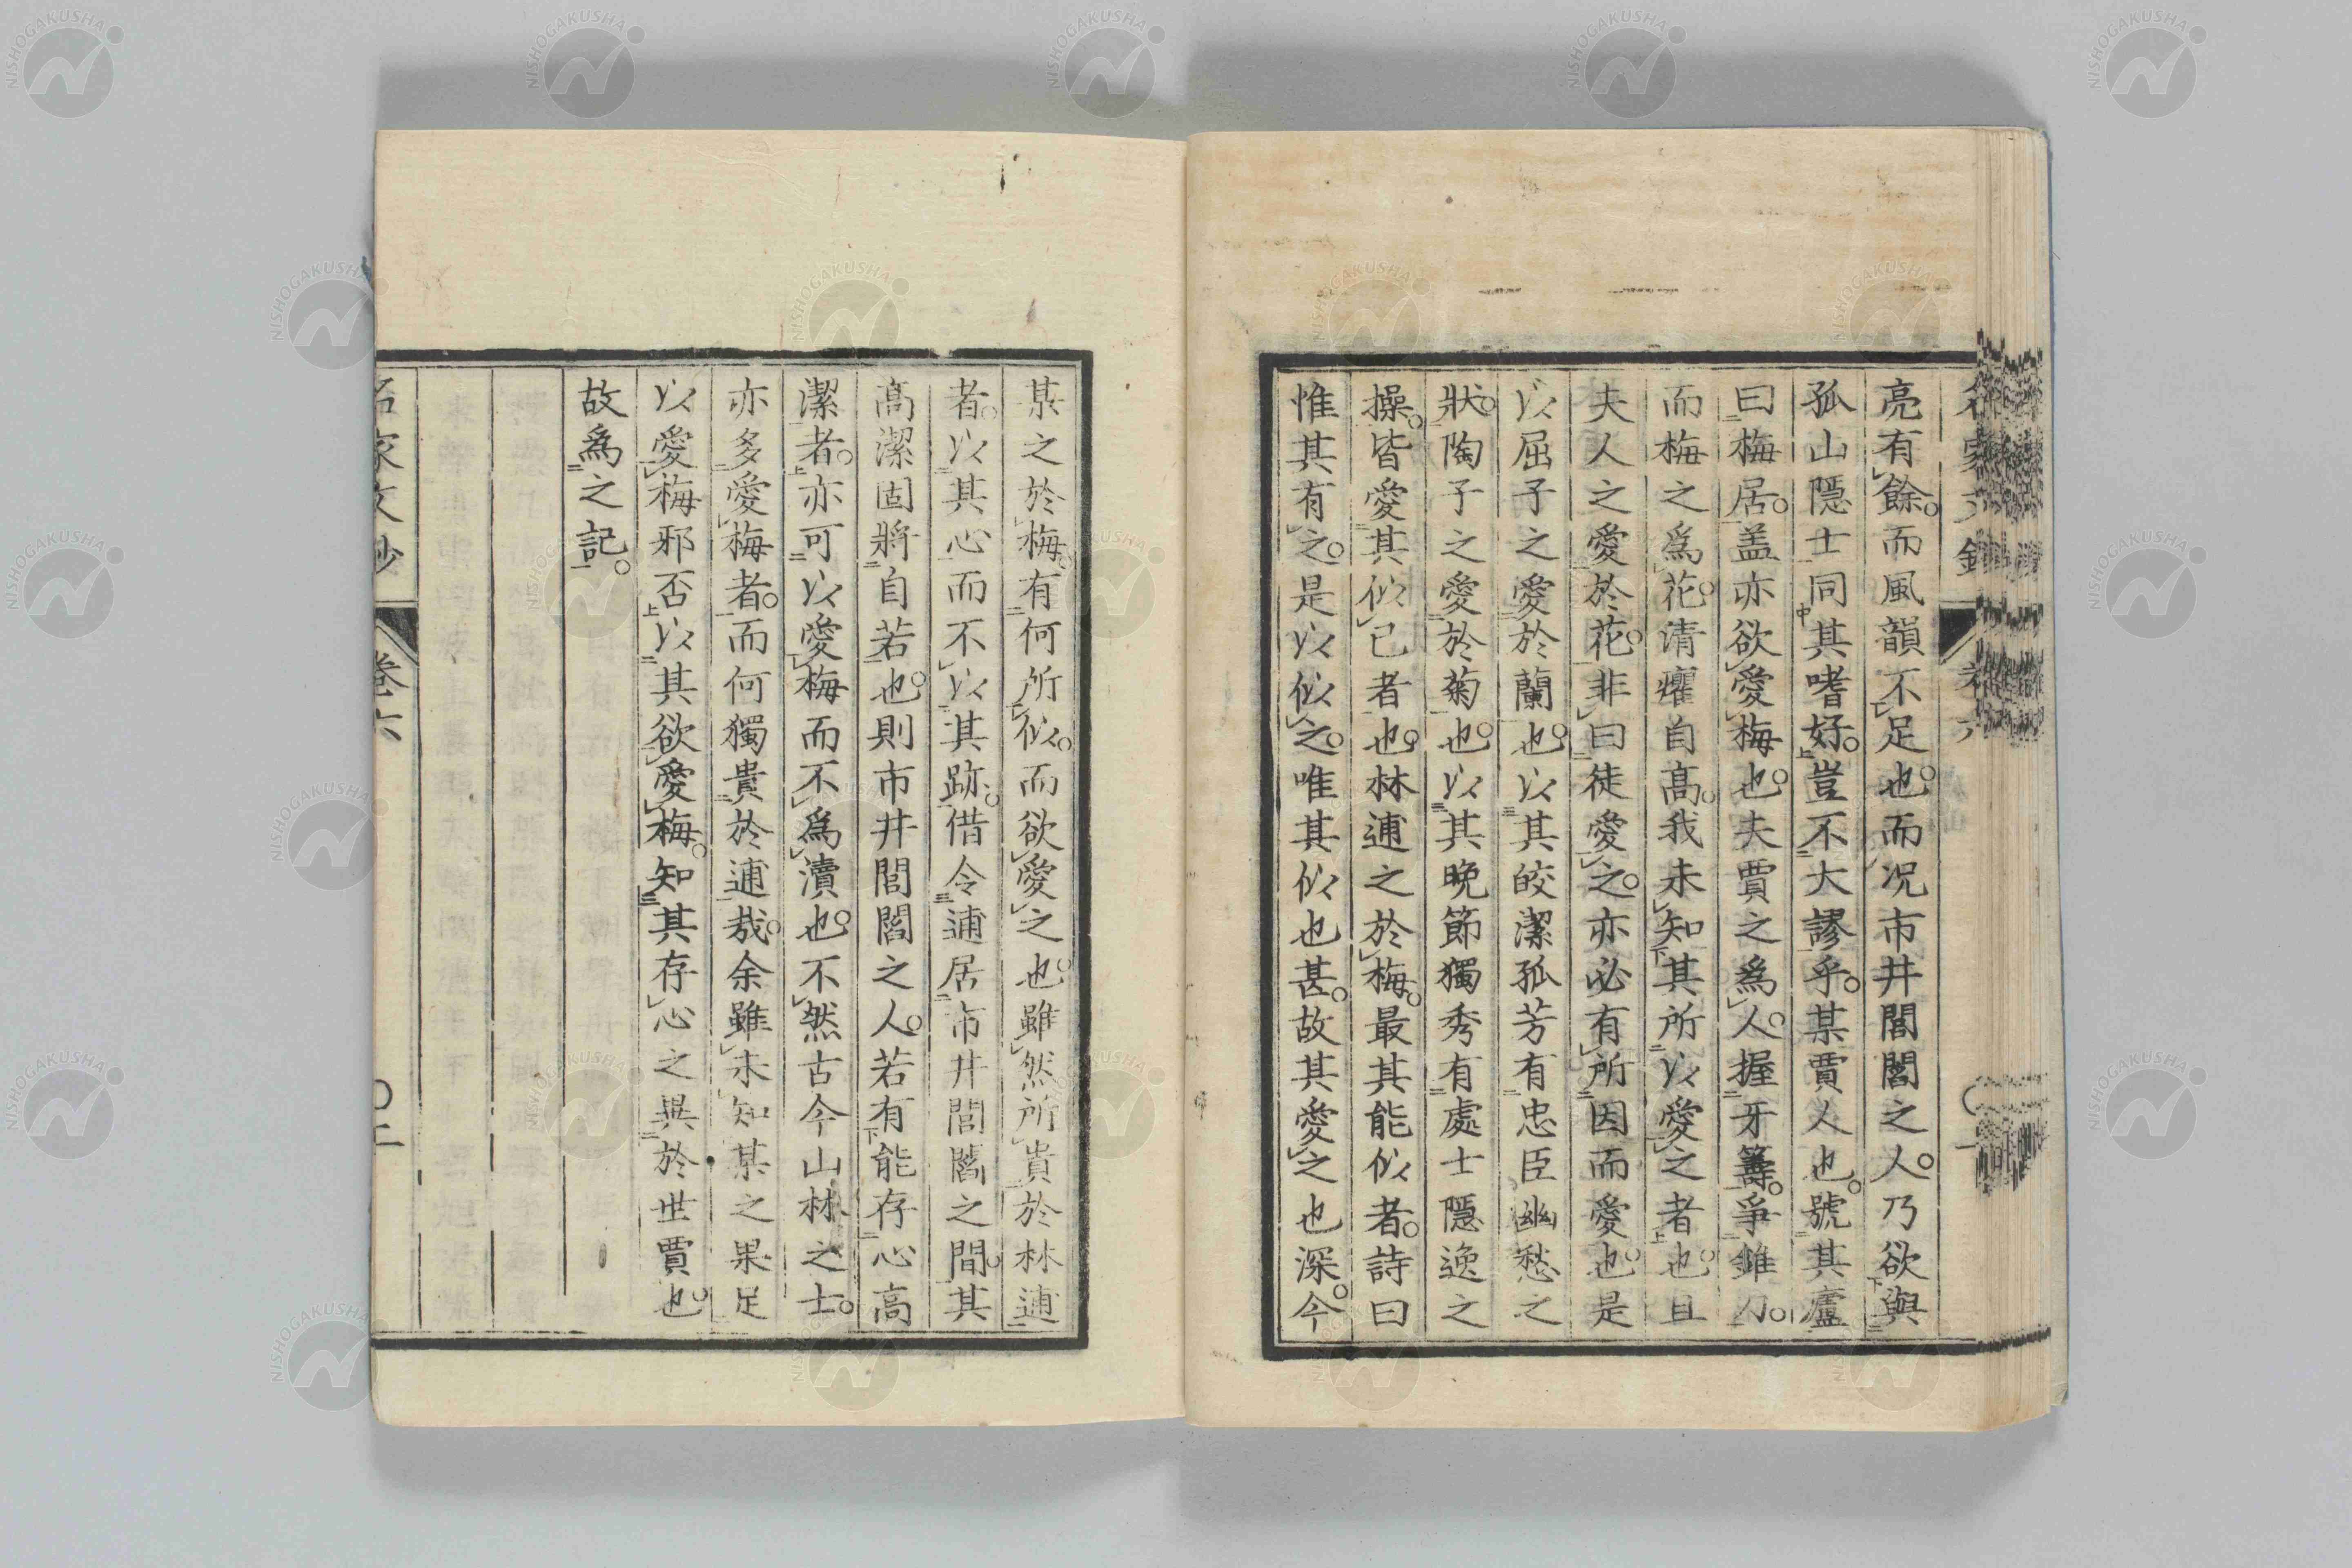 亮有餘。而風韻不足也。而况市井閭閻之人。乃欲與
孤山隱士同其嗜好。豈不大謬乎。某賈人也。號其廬
曰梅居。盖亦欲愛梅也。夫賈之爲人。握牙籌。爭錐刀。
而梅之爲花。清癯自高。我未知其所以愛之者也。且
夫人之愛於花。非曰徒愛之。亦必有所因而愛也。是
以屈子之愛於蘭也。以其皎潔孤芳有忠臣幽愁之
狀。陶子之愛於菊也。以其晩節獨秀有處士隱逸之
操。皆愛其似己者也。林逋之於梅。最其能似者。詩曰
惟其有之。是以似之。唯其似也甚。故其愛之也深。今
某之於梅。有何所似。而欲愛之也。雖然所貴於林逋
者。以其心而不以其跡。借令逋居市井閭閻之間。其
高潔固將自若也。則市井閭閻之人。若有能存心高
潔者。亦可以愛梅而不爲瀆也。不然古今山林之士。
亦多愛梅者。而何獨貴於逋哉。余雖未知某之果足
以愛梅邪否。以其欲愛梅。知其存心之異於世賈也。
故爲之記。
名家文抄 卷六 〇二
NISHOGAKUSHA